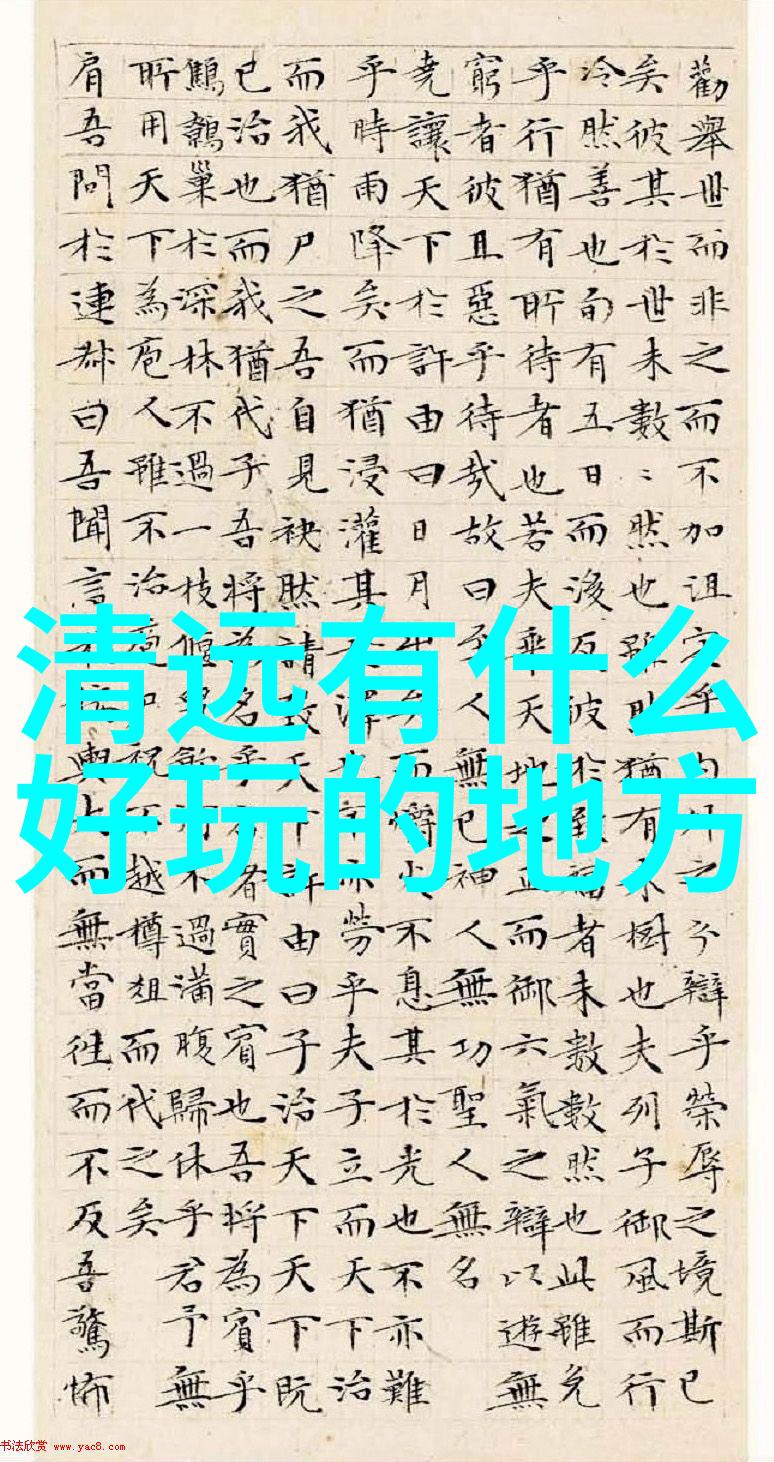 勸舉世而非之而不加沮定乎之分辯乎榮辱之境斯已
矣彼其於世未數〻然也雖猶有未樹也夫列子御風而行
泠然善也旬有五日而後反彼於致福者未數數然也此雖免
乎行猶有所待者也若夫乘天地之正而御六氣之辯以遊無
窮者彼且惡乎待哉故曰至人無已神人無功聖人無名
堯讓天下於許由曰日月出矣而爝火不息其於光也不亦難
乎時雨降矣而猶浸灌其澤不亦勞乎夫子立而天下治
而我猶尸之吾自見缺然請致天下許由曰子治天下天下既
已治也而我猶代子吾將為名乎者實之賓也吾將為賓乎
鷦鷯巢於深林不過一枝偃鼠飲河不過滿腹歸休乎君予無
所用天下為庖人雖不治庖尸祝不越樽俎而代之矣
肩吾問於連叔曰吾聞言輿大而無當往而不反吾驚怖
清远有什么
好玩的地方
书法欣赏 www.yac8.com